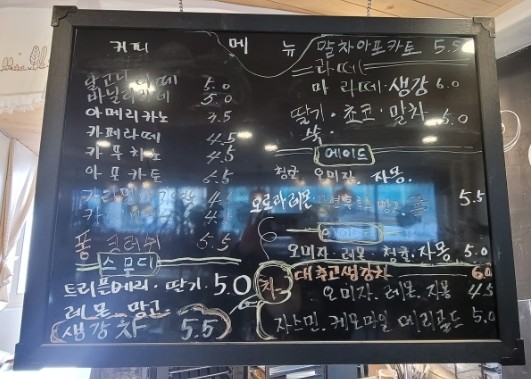 커피 메뉴
달고나라떼 5.0
바닐라라떼 5.0
아메리카노 3.5
카페라떼 4.5
카푸치노 4.5
아포카토 6.5
4.5
퐁 크러쉬 5.5
스무디
트리플베리 · 딸기 5.0
레몬 망고
생강차 5.5
말차아포카토 5.5
라떼
마 라떼 · 생강 6.0
딸기 · 쵸코 · 말차 5.0
쑥
에이드
청귤 오미자. 자몽.
오로라레몬 5.5
오미자. 레몬. 청귤. 자몽. 5.0
차 대추고생강차 6.0
오미자. 레몬. 자몽 4.5
자스민. 케모마일 메리골드 5.0